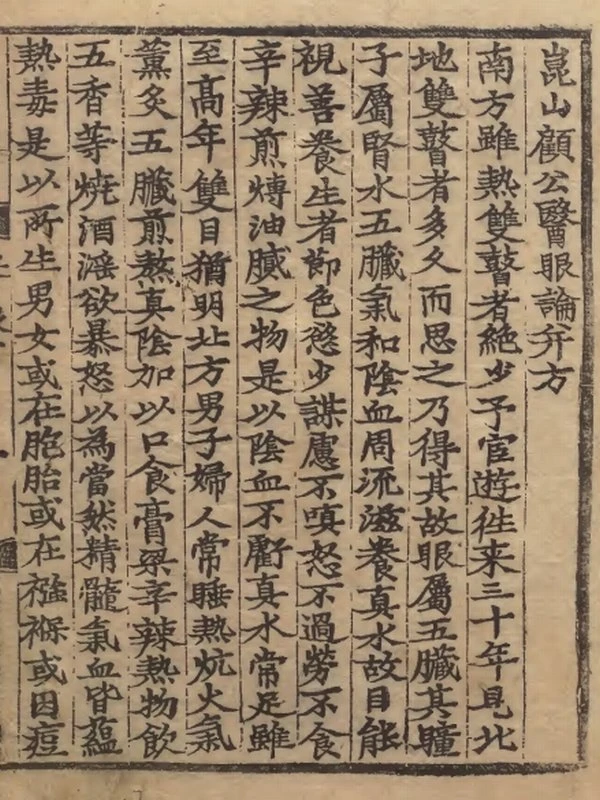 崑山顧公醫眼論并方
南方雖熱雙瞽者絕少予宦遊徃来三十年見北
地雙瞽者多久而思之乃得其故眼屬五臟其瞳
子屬腎水五臟氣和陰血周流滋養真水故目能
視善養生者節色慾少謀慮不嗔怒不過勞不食
辛辣煎煿油膩之物是以陰血不虧真水常足雖
至髙年雙目猶明北方男子婦人常睡熱炕火氣
薰炙五臟煎熬真陰加以口食膏粱辛辣熱物飲
五香等燒酒滛欲暴怒以為當然精髓氣血皆蘊
熱毒是以所生男女或在胞胎或在襁褓或因痘